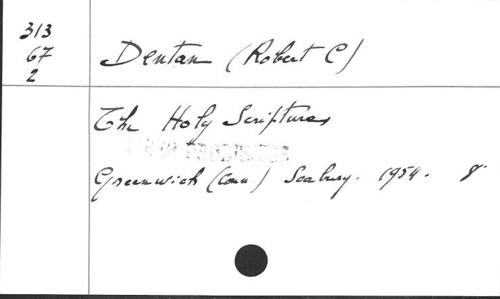 313
67
2
Dentan (Robert C)
The Holy Scriptures
Greenwich (Conn.) Seabury. 1954. 8°